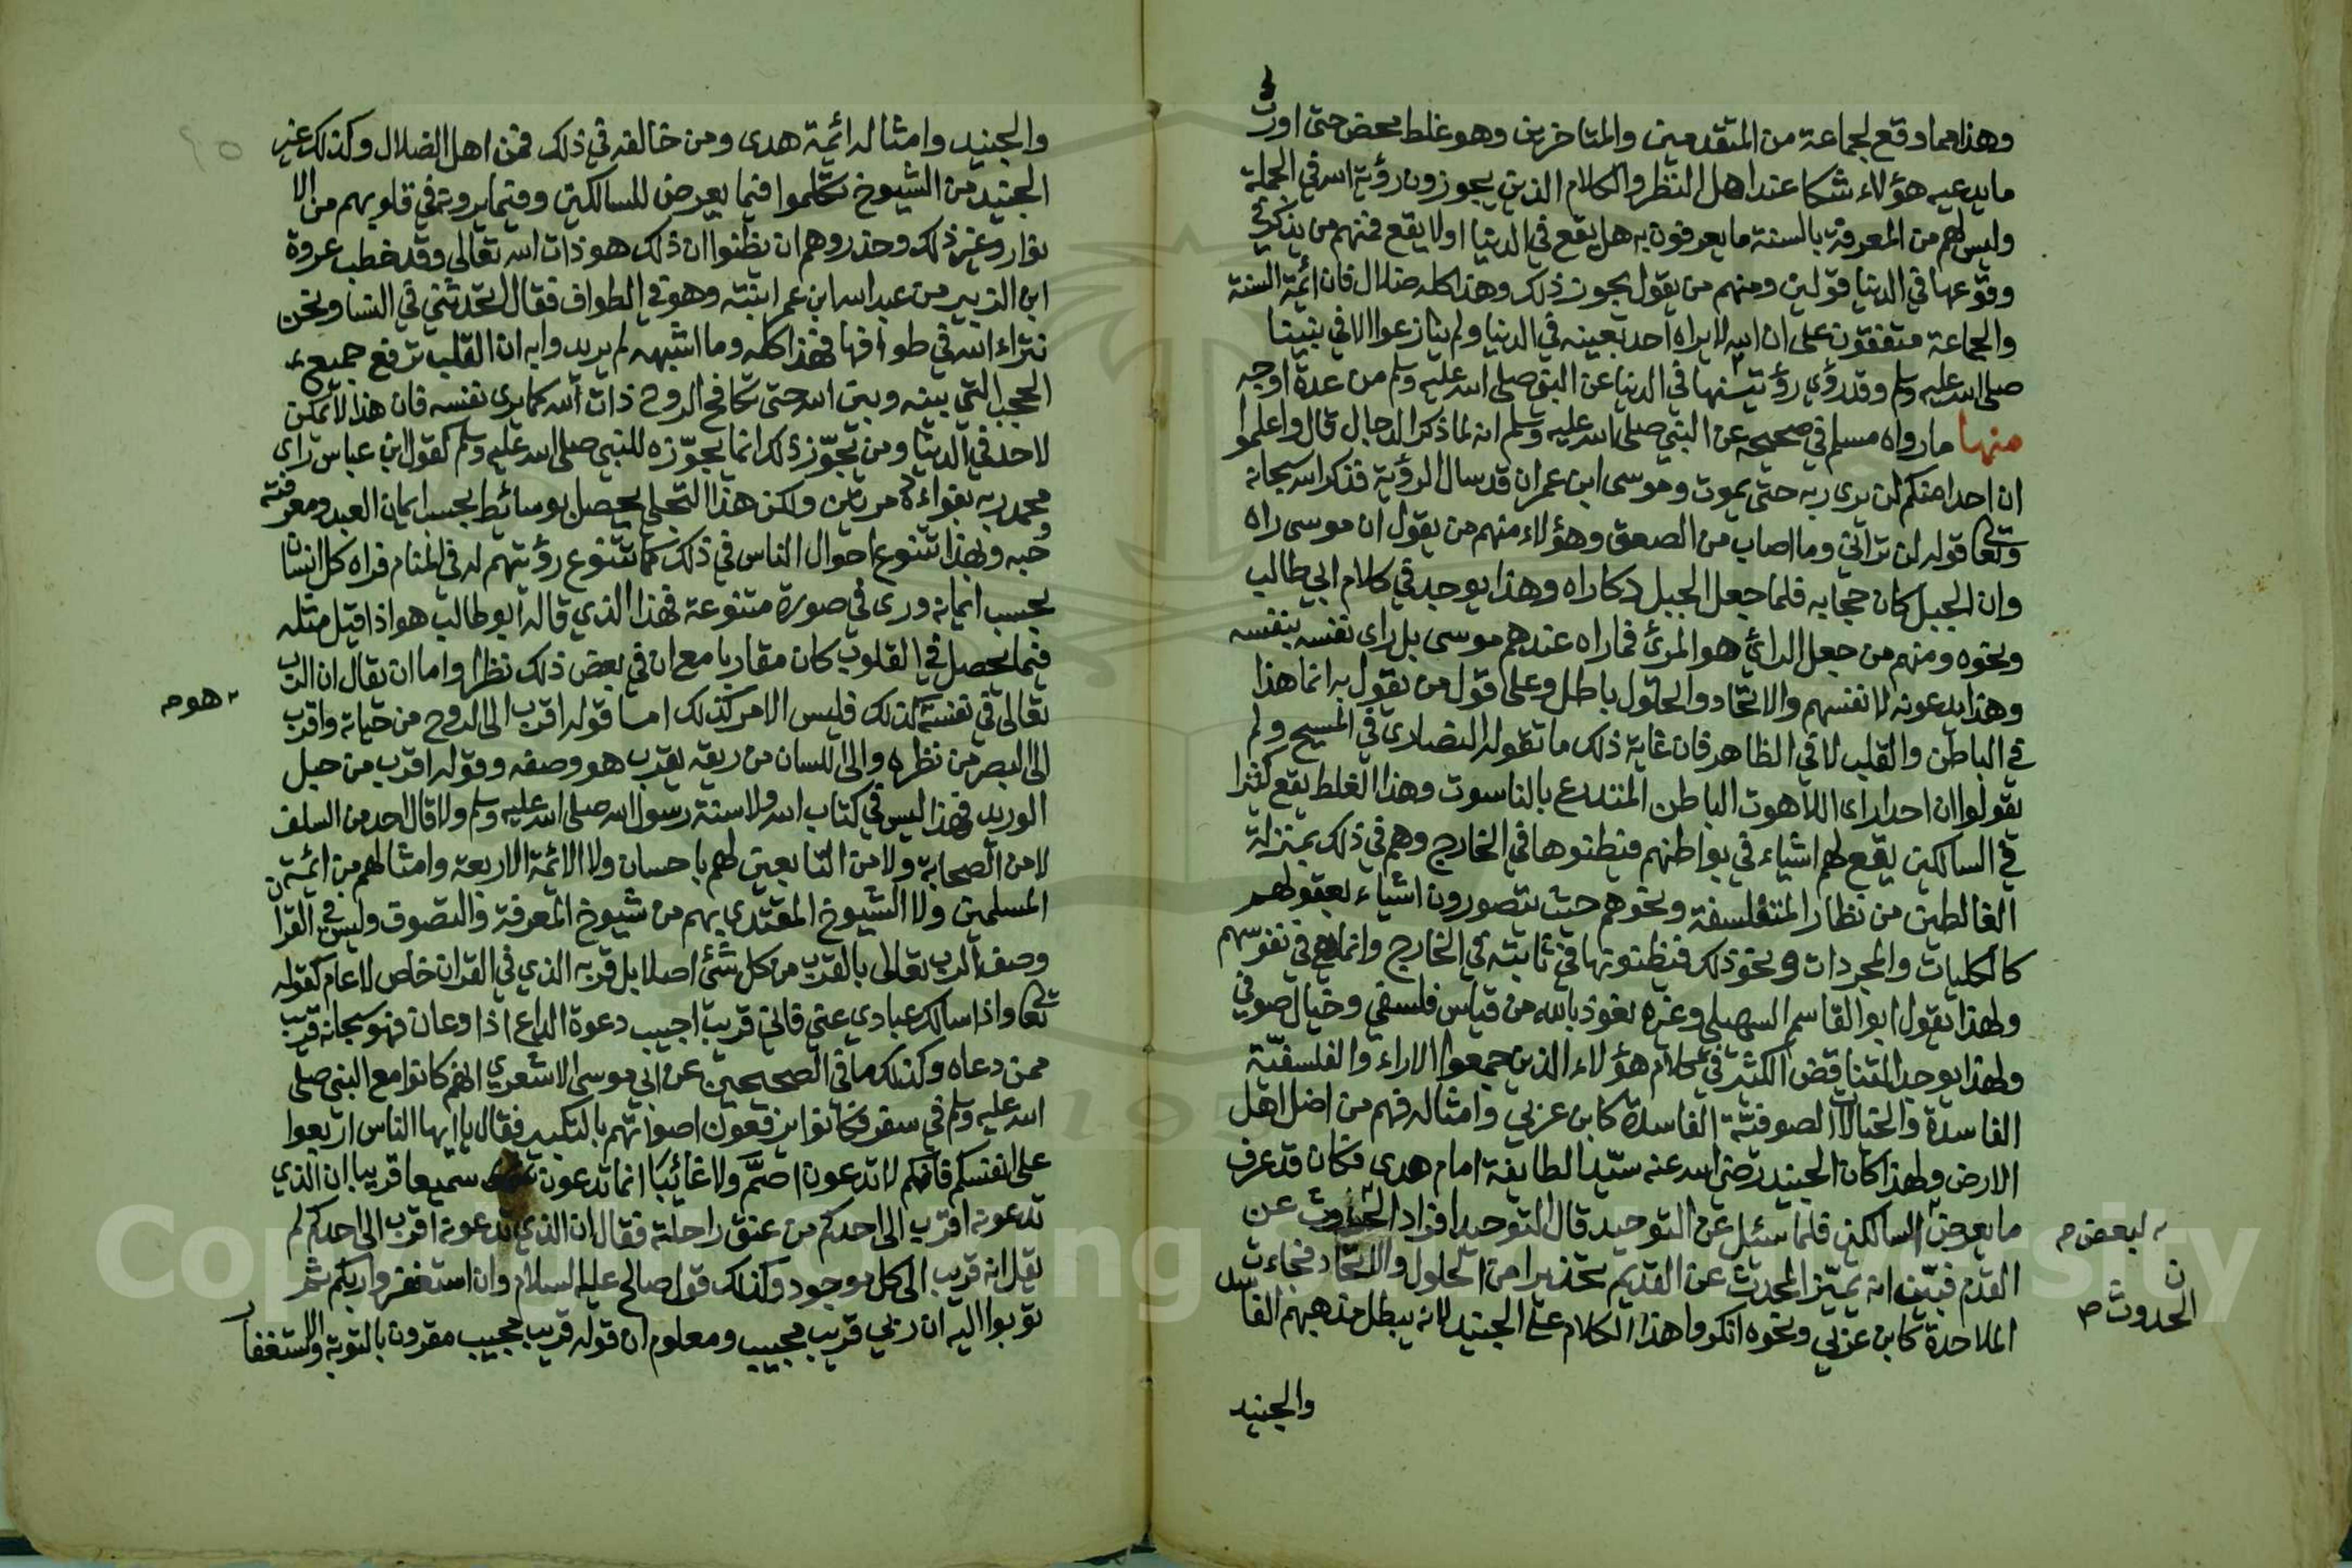 وهذا مما وقع لجماعة من المتقدمين والمتاخرين وهو غلط محض حتى اورث
ما يدعيه هؤلاء شكا عند اهل النظر والكلام الذين يجوزون رؤية الله في الجملة
وليس لهم من المعرفة بالسنة ما يعرفون به هل يقع في الدنيا اولا يقع فمنهم من يذكر في
وقوعها في الدنيا قولين ومنهم من يقول يجوز ذلك وهذا كله ضلال فان ائمة السنة
والجماعة متفقون على ان الله لا يراه احد بعينه في الدنيا ولم يتنازعوا الا في نبينا
صلى الله عليه وسلم وقد روي في الدنيا عن النبي صلى الله عليه وسلم من عدة اوجه
منها ما رواه مسلم في صحيحه عن النبي صلى الله عليه وسلم انه لما ذكر الدجال قال واعلموا
ان احدا منكم لن يرى ربه حتى يموت وموسى ابن عمران قد سال الرؤية فذكر الله سبحانه
وتعالى قوله لن تراني وما اصاب من الصعق وهؤلاء منهم من يقول ان موسى راه
وان الجبل كان حجابه فلما جعل الجبل دكا راه وهذا يوجد في كلام ابي طالب
ونحوه ومنهم من جعل الرائي هو المرئ فما راه عندهم موسى بل راى نفسه بنفسه
وهذا يدعونه لانفسهم والاتحاد والحلول باطل وعلى قول من يقول به انما هذا
في الباطن والقلب لا في الظاهر فان غاية ذلك ما تقوله النصارى في المسيح ولم
يقولوا ان احدا راى اللاهوت الباطن المتدرع بالناسوت وهذا الغلط يقع كثيرا
في السالكين يقع لهم اشياء في بواطنهم فيظنوها في الخارج وهم في ذلك بمنزلة
الغالطين من نظار المتفلسفة ونحوهم حيث يتصورون اشياء بعقولهم
كالكليات والمجردات ونحو ذلك فيظنونها ثابتة في الخارج وانما هي في نفوسهم
ولهذا يقول ابو القاسم السهيلي وغيره نعوذ بالله من قياس فلسفي وخيال صوفي
ولهذا يوجد التناقض الكثير في كلام هؤلاء الذين جمعوا الاراء والفلسفية
الفاسدة والخيالات الصوفية الفاسدة كابن عربي وامثاله فهم من اضل اهل
الارض ولهذا كان الجنيد رضي الله عنه سيد الطايفة امام هدى فكان قد عرف
ما يعرض السالكين فلما سئل عن التوحيد قال التوحيد افراد عن
لبعض
القدم فبين انه يميز المحدث عن القديم تحذيرا من الحلول والاتحاد فجاءت
الحدوث
الملاحدة كابن عربي ونحوه انكروا هذا الكلام على الجنيد لانه يبطل مذهبهم الفاسد
والجنيد
والجنيد وامثاله ائمة هدى ومن خالفه في ذلك فمن اهل الضلال وكذلك غير
الجنيد من الشيوخ تكلموا فيما يعرض للسالكين وفيما يرونه في قلوبهم من الا
نوار وغير ذلك وحذروهم ان يظنوا ان ذلك هو ذات الله تعالى وقد خطب عروة
ابن الزبير من عبد الله ابن عمر ابنته وهو في الطواف فقال اتحدثني في النسا ونحن
نتراء الله في طوافنا فهذا كله وما اشبهه لم يريدوا به ان القلب ترفع جميع
الحجب التي بينه وبين الله حتى تكافح الروح ذات الله كما يرى نفسه فان هذا لا يمكن
لاحد في الدنيا ومن يجوز ذلك انما يجوزه للنبي صلى الله عليه وسلم كقول ابن عباس راى
محمد ربه بفواده مرتين ولكن هذا التجلي يحصل بوسائط بحسب ايمان العبد ومعرفته
وحبه ولهذا تتنوع احوال الناس في ذلك كما تتنوع رؤيتهم له في المنام فراه كل انسان
بحسب ايمانه ورى في صورة متنوعة فهذا الذي قاله ابو طالب هو اذا قيل مثله
فيما يحصل في القلوب كان مقاربا مع ان في بعض ذلك نظرا واما ان يقال ان الرب
تعالى في نفسه كذلك فليس الامر كذلك اما قوله اقرب الى الروح من حياته واقرب
هو
الى البصر من نظره والى اللسان من ريقه بقرب هو وصفه وقوله اقرب من حبل
الوريد فهذا ليس في كتاب الله ولا سنة رسول الله صلى الله عليه وسلم ولا قال احد من السلف
لا من الصحابة ولا من التابعين لهم باحسان ولا الائمة الاربعة وامثالهم من ائمة
المسلمين ولا الشيوخ المقتدى بهم من شيوخ المعرفة والتصوف وليس في القران
وصف الرب تعالى بالقرب من كل شئ اصلا بل قربه الذي في القران خاص لا عام كقوله
تعالى واذا سالك عبادي عني فاني قريب اجيب دعوة الداع اذا دعان فهو سبحانه قريب
ممن دعاه وكذلك ما في الصحيحين عن ابي موسى الاشعري انهم كانوا مع النبي صلى
الله عليه وسلم في سفر فكانوا يرفعون اصواتهم بالتكبير فقال يا ايها الناس اربعوا
على انفسكم فانكم لا تدعون اصم ولا غائبا انما تدعون سميعا قريبا ان الذي
تدعونه اقرب الى احدكم من عنق راحلته فقال ان الذي تدعونه اقرب الى احدكم لم
يقل انه قريب الى كل موجود وكذلك قول صالح عليه السلام وان استغفروا ربكم ثم
توبوا اليه ان ربي قريب مجيب ومعلوم ان قوله قريب مجيب مقرون بالتوبة والاستغفار